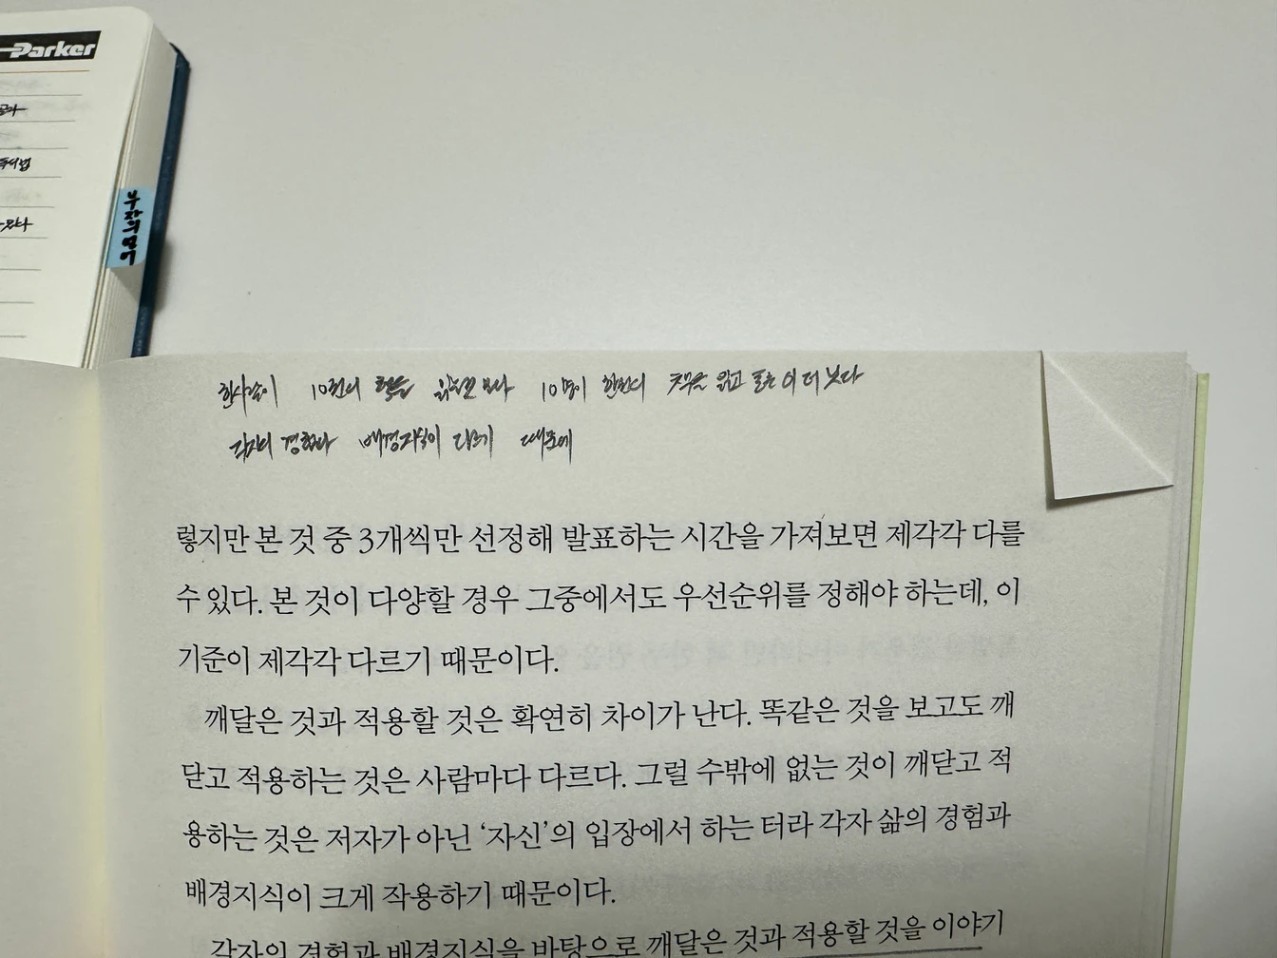 Parker
부자의 일기
한사람이 10번의 책을 읽는것 보다 10명이 한번의 책을 읽고 토론이 더 낫다
각자의 경험과 배경지식이 다르기 때문에
렇지만 본 것 중 3개씩만 선정해 발표하는 시간을 가져보면 제각각 다를
수 있다. 본 것이 다양할 경우 그중에서도 우선순위를 정해야 하는데, 이
기준이 제각각 다르기 때문이다.
깨달은 것과 적용할 것은 확연히 차이가 난다. 똑같은 것을 보고도 깨
닫고 적용하는 것은 사람마다 다르다. 그럴 수밖에 없는 것이 깨닫고 적
용하는 것은 저자가 아닌 ‘자신’의 입장에서 하는 터라 각자 삶의 경험과
배경지식이 크게 작용하기 때문이다.
각자의 경험과 배경지식을 바탕으로 깨달은 것과 적용할 것을 이야기